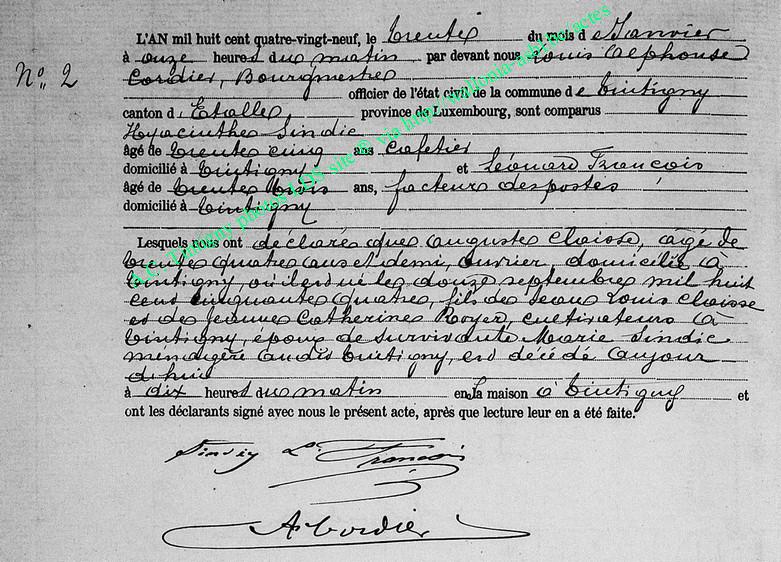 N° 2
L'AN mil huit cent quatre-vingt-neuf, le trente du mois de Janvier
à onze heures du matin par devant nous Louis Alphonse
Cordier, Bourgmestre
officier de l'état civil de la commune de Tintigny
canton d'Etalle, province de Luxembourg, sont comparus
Hyacinthe Sindic
âgé de trente cinq ans cafetier
domicilié à Tintigny et Léonard François
âgé de trente trois ans, facteur des postes
domicilié à Tintigny
Lesquels nous ont déclaré que Auguste Claisse, âgé de
trente quatre ans et demi, ouvrier, domicilié à
Tintigny, où il est né le douze septembre mil huit
cent cinquante quatre, fils de Jean Louis Claisse
et de Jeanne Catherine Royer, cultivateurs à
Tintigny, époux de survivante Marie Sindic
ménagère audit Tintigny, est décédé aujour
d'hui
à dix heures du matin en la maison à Tintigny et
ont les déclarants signé avec nous le présent acte, après que lecture leur en a été faite.
L. François
A Cordier
A.C. Tintigny photos LDS site © via http://wallonia-asbl.be/actes